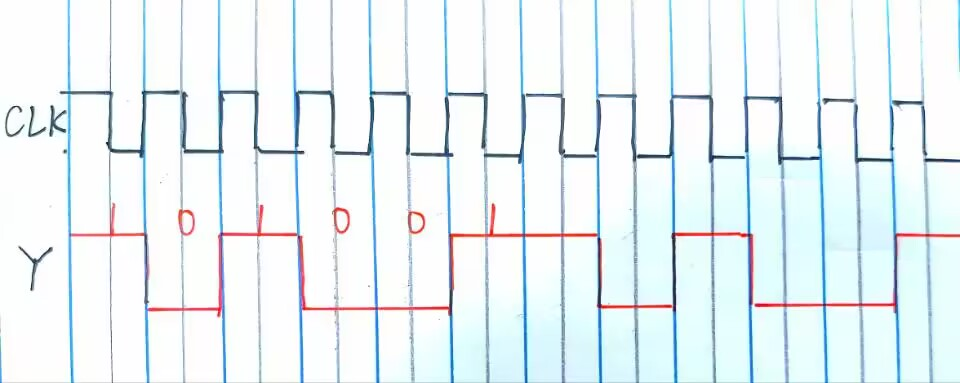 CLK
1 0 1 0 0 1
Y